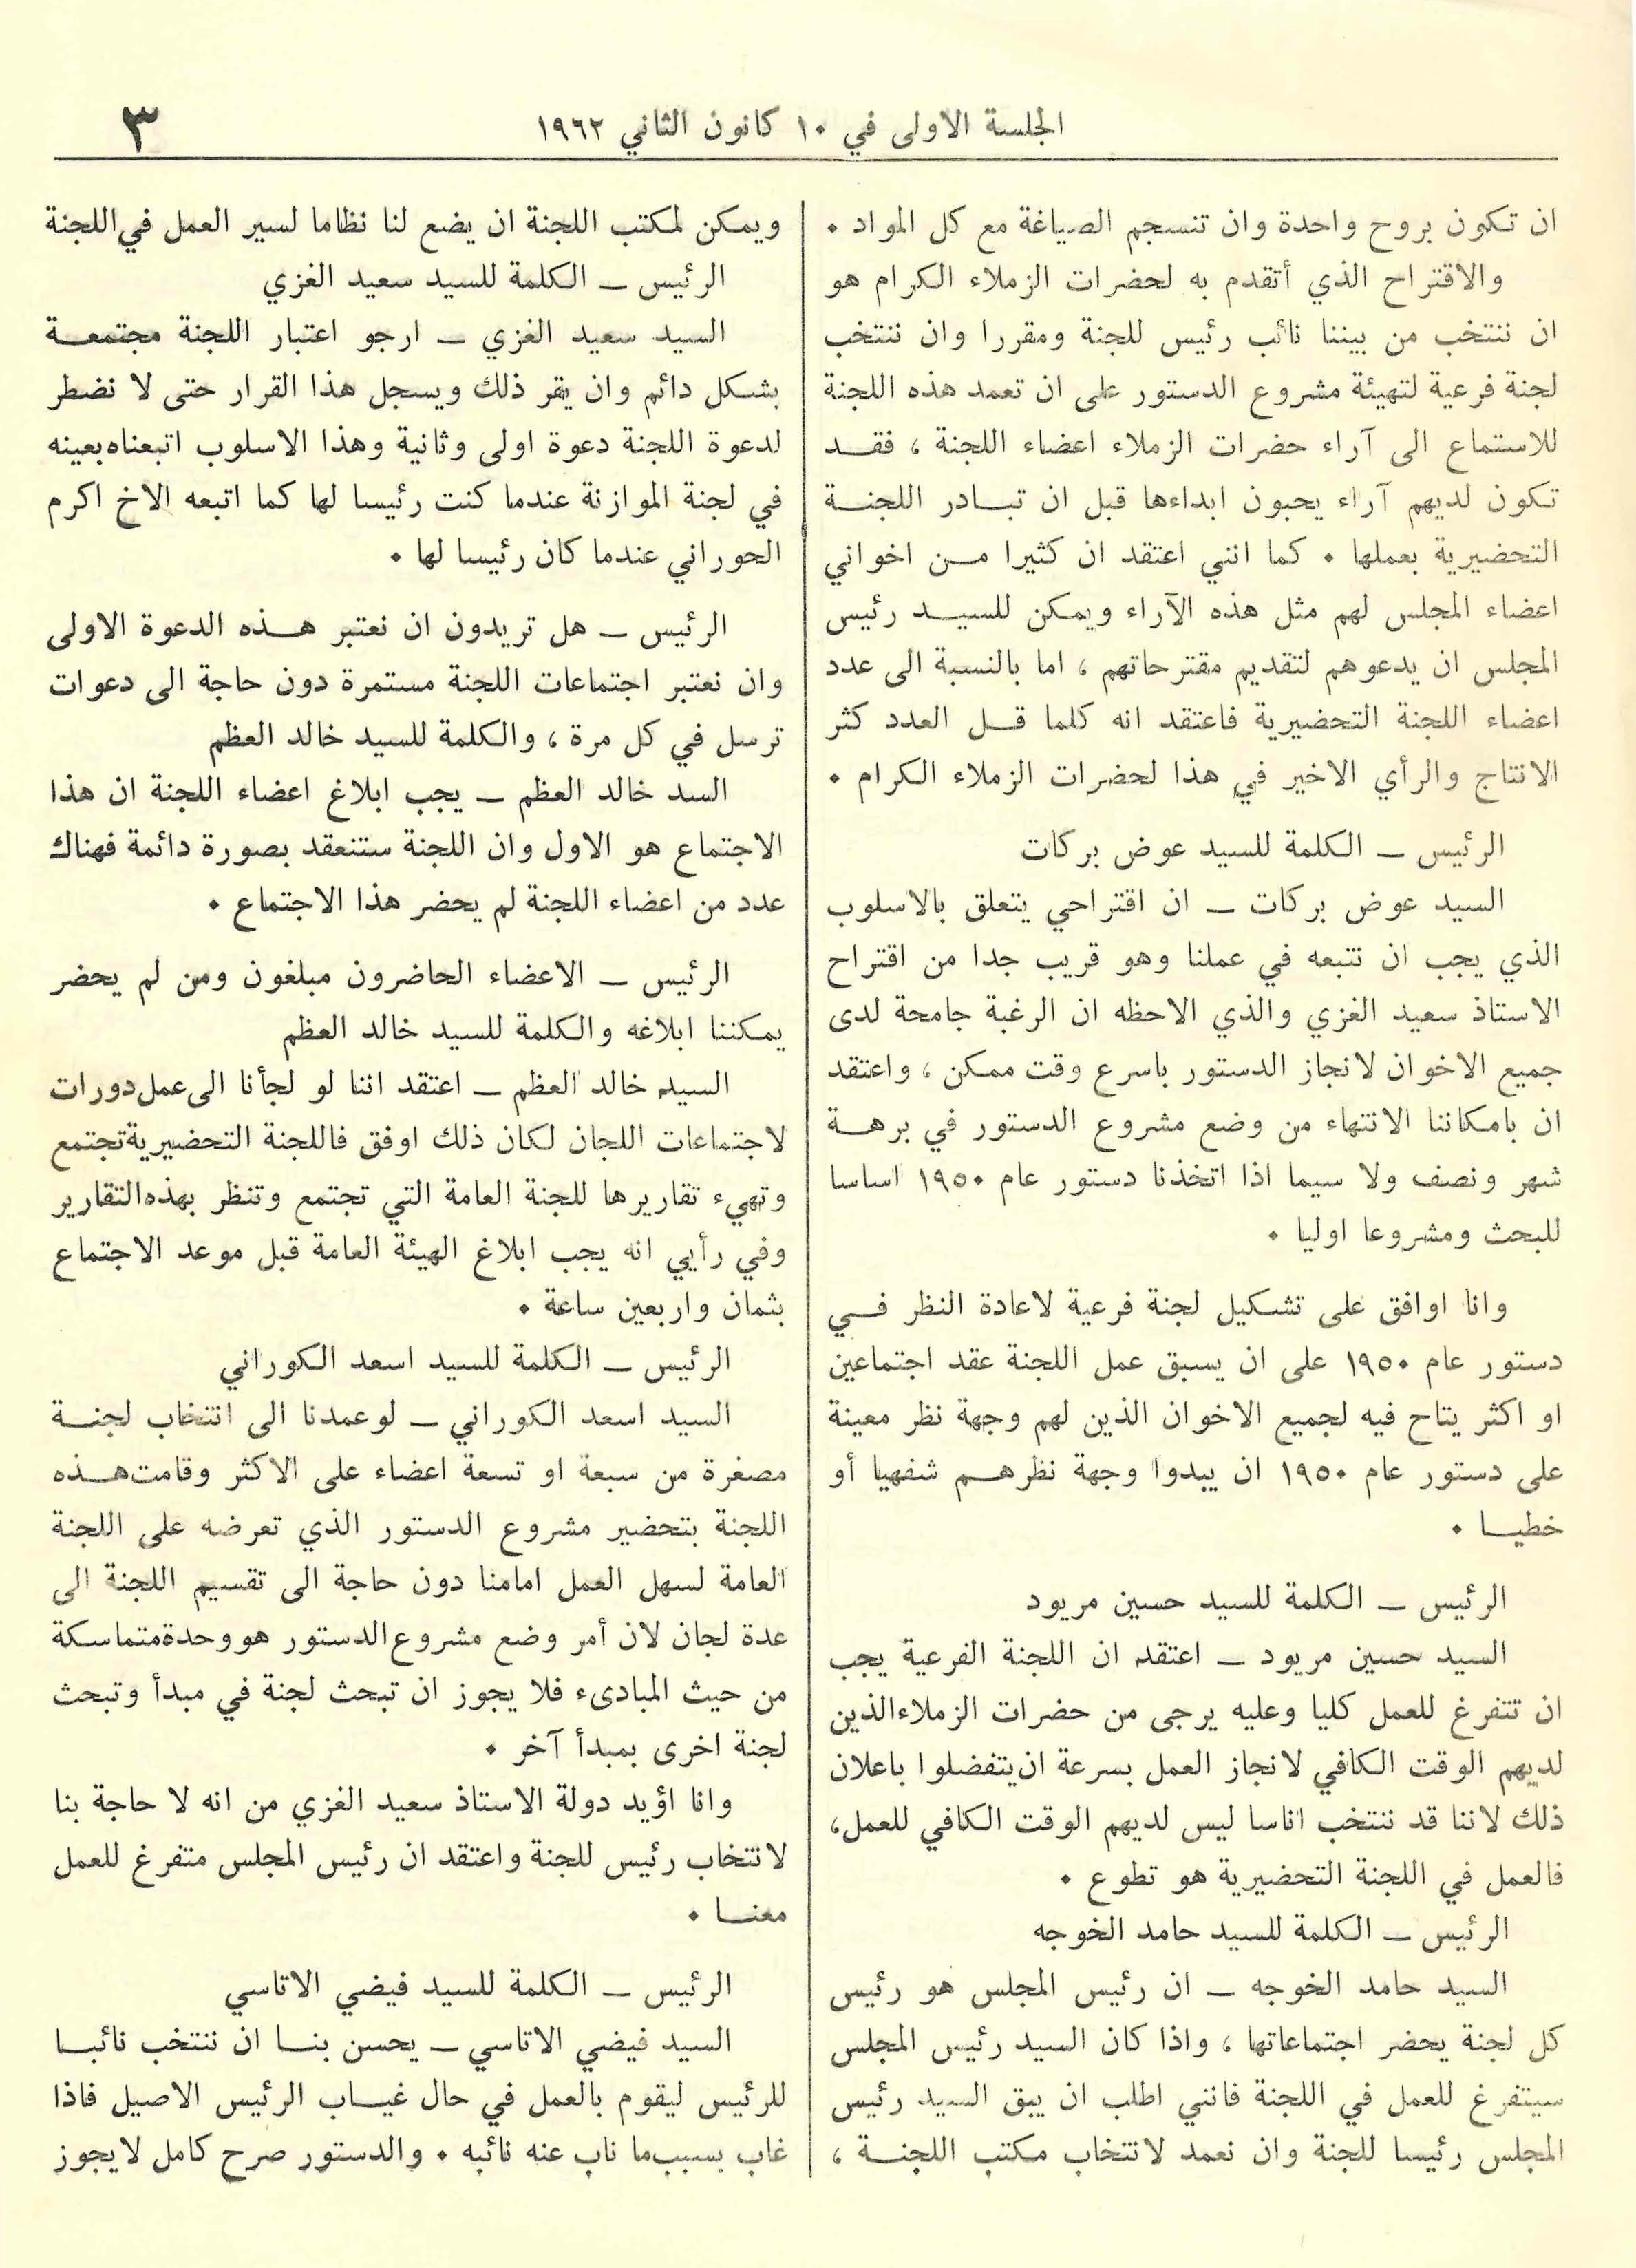 الجلسة الاولى في ١٠ كانون الثاني ١٩٦٢
٣
ان تكون بروح واحدة وان تنسجم الصياغة مع كل المواد ٠
والاقتراح الذي أتقدم به لحضرات الزملاء الكرام هو
ان ننتخب من بيننا نائب رئيس للجنة ومقررا وان ننتخب
لجنة فرعية لتهيئة مشروع الدستور على ان تعمد هذه اللجنة
للاستماع الى آراء حضرات الزملاء اعضاء اللجنة ، فقد
تكون لديهم آراء يحبون ابداءها قبل ان تبادر اللجنة
التحضيرية بعملها ٠ كما انني اعتقد ان كثيرا من اخواني
اعضاء المجلس لهم مثل هذه الآراء ويمكن للسيد رئيس
المجلس ان يدعوهم لتقديم مقترحاتهم ، اما بالنسبة الى عدد
اعضاء اللجنة التحضيرية فاعتقد انه كلما قل العدد كثر
الانتاج والرأي الاخير في هذا لحضرات الزملاء الكرام ٠
الرئيس ــ الكلمة للسيد عوض بركات
السيد عوض بركات ــ ان اقتراحي يتعلق بالاسلوب
الذي يجب ان نتبعه في عملنا وهو قريب جدا من اقتراح
الاستاذ سعيد الغزي والذي الاحظه ان الرغبة جامحة لدى
جميع الاخوان لانجاز الدستور باسرع وقت ممكن ، واعتقد
ان بامكاننا الانتهاء من وضع مشروع الدستور في برهة
شهر ونصف ولا سيما اذا اتخذنا دستور عام ١٩٥٠ اساسا
للبحث ومشروعا اوليا ٠
وانا اوافق على تشكيل لجنة فرعية لاعادة النظر في
دستور عام ١٩٥٠ على ان يسبق عمل اللجنة عقد اجتماعين
او اكثر يتاح فيه لجميع الاخوان الذين لهم وجهة نظر معينة
على دستور عام ١٩٥٠ ان يبدوا وجهة نظرهم شفهيا أو
خطيا ٠
الرئيس ــ الكلمة للسيد حسين مريود
السيد حسين مريود ــ اعتقد ان اللجنة الفرعية يجب
ان تتفرغ للعمل كليا وعليه يرجى من حضرات الزملاء الذين
لديهم الوقت الكافي لانجاز العمل بسرعة ان يتفضلوا باعلان
ذلك لاننا قد ننتخب اناسا ليس لديهم الوقت الكافي للعمل،
فالعمل في اللجنة التحضيرية هو تطوع ٠
الرئيس ــ الكلمة للسيد حامد الخوجه
السيد حامد الخوجه ــ ان رئيس المجلس هو رئيس
كل لجنة يحضر اجتماعاتها ، واذا كان السيد رئيس المجلس
سيتفرغ للعمل في اللجنة فانني اطلب ان يبق السيد رئيس
المجلس رئيسا للجنة وان نعمد لانتخاب مكتب اللجنة ،
ويمكن لمكتب اللجنة ان يضع لنا نظاما لسير العمل في اللجنة
الرئيس ــ الكلمة للسيد سعيد الغزي
السيد سعيد الغزي ــ ارجو اعتبار اللجنة مجتمعة
بشكل دائم وان يقر ذلك ويسجل هذا القرار حتى لا نضطر
لدعوة اللجنة دعوة اولى وثانية وهذا الاسلوب اتبعناه بعينه
في لجنة الموازنة عندما كنت رئيسا لها كما اتبعه الاخ اكرم
الحوراني عندما كان رئيسا لها ٠
الرئيس ــ هل تريدون ان نعتبر هذه الدعوة الاولى
وان نعتبر اجتماعات اللجنة مستمرة دون حاجة الى دعوات
ترسل في كل مرة ، والكلمة للسيد خالد العظم
السد خالد العظم ــ يجب ابلاغ اعضاء اللجنة ان هذا
الاجتماع هو الاول وان اللجنة ستنعقد بصورة دائمة فهناك
عدد من اعضاء اللجنة لم يحضر هذا الاجتماع ٠
الرئيس ــ الاعضاء الحاضرون مبلغون ومن لم يحضر
يمكننا ابلاغه والكلمة للسيد خالد العظم
السيد خالد العظم ــ اعتقد اننا لو لجأنا الى عمل دورات
لاجتماعات اللجان لكان ذلك اوفق فاللجنة التحضيرية تجتمع
وتهيء تقاريرها للجنة العامة التي تجتمع وتنظر بهذه التقارير
وفي رأيي انه يجب ابلاغ الهيئة العامة قبل موعد الاجتماع
بثمان واربعين ساعة ٠
الرئيس ــ الكلمة للسيد اسعد الكوراني
السيد اسعد الكوراني ــ لو عمدنا الى انتخاب لجنة
مصغرة من سبعة او تسعة اعضاء على الاكثر وقامت هذه
اللجنة بتحضير مشروع الدستور الذي تعرضه على اللجنة
العامة لسهل العمل امامنا دون حاجة الى تقسيم اللجنة الى
عدة لجان لان أمر وضع مشروع الدستور هو وحدة متماسكة
من حيث المبادىء فلا يجوز ان تبحث لجنة في مبدأ وتبحث
لجنة اخرى بمبدأ آخر ٠
وانا اؤيد دولة الاستاذ سعيد الغزي من انه لا حاجة بنا
لانتخاب رئيس للجنة واعتقد ان رئيس المجلس متفرغ للعمل
معنا ٠
الرئيس ــ الكلمة للسيد فيضي الاتاسي
السيد فيضي الاتاسي ــ يحسن بنا ان ننتخب نائبا
للرئيس ليقوم بالعمل في حال غياب الرئيس الاصيل فاذا
غاب بسبب ما ناب عنه نائبه ٠ والدستور صرح كامل لا يجوز